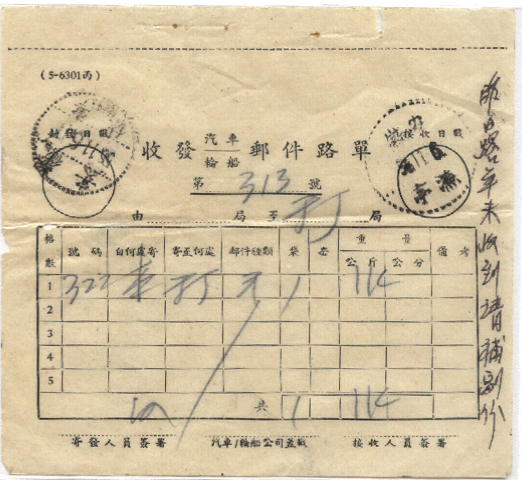 (5-6301丙)
封發日戳
接收日戳
收發汽車輪船郵件路單
第 313 號
由 局至 打 局
格數 號碼 自何處寄 寄至何處 郵件種類 袋套 重量 公斤 公分 備考
1 322 打 1 114
2
3
4
5
共 1 114
寄發人員簽署 汽車/輪船公司蓋戳 接收人員簽署
昨日路單未收到請補副份